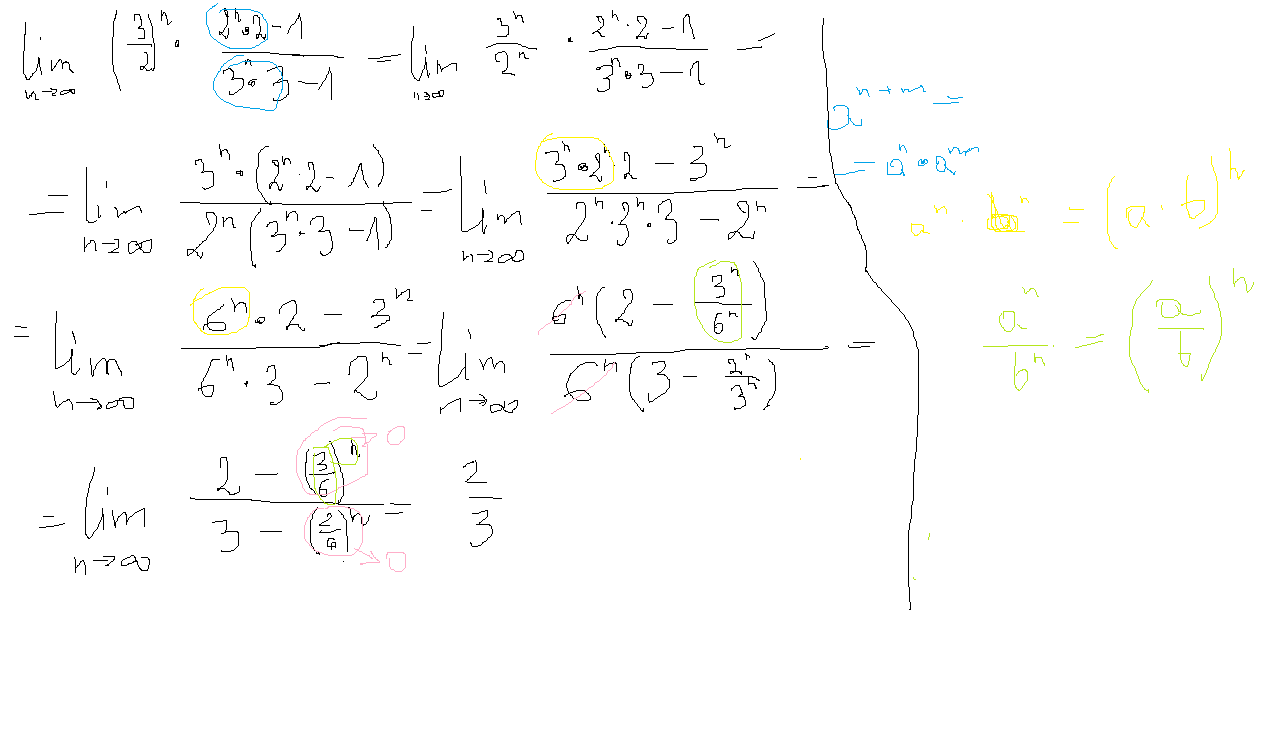 lim n→∞ (3/2)^n · (2^n·2−1)/(3^n·3−1) = lim n→∞ 3^n/2^n · (2^n·2−1)/(3^n·3−1) =
= lim n→∞ (3^n·(2^n·2−1))/(2^n(3^n·3−1)) = lim n→∞ (3^n·2^n·2−3^n)/(2^n·3^n·3−2^n) =
= lim n→∞ (6^n·2−3^n)/(6^n·3−2^n) = lim n→∞ (6^n(2−3^n/6^n))/(6^n(3−2^n/3^n)) =
= lim n→∞ (2−(3/6)^n)/(3−(2/6)^n) = 2/3
→ 0
→ 0
a^(n+m) =
= a^n · a^m
a^n · b^n = (a·b)^n
a^n/b^n = (a/b)^n